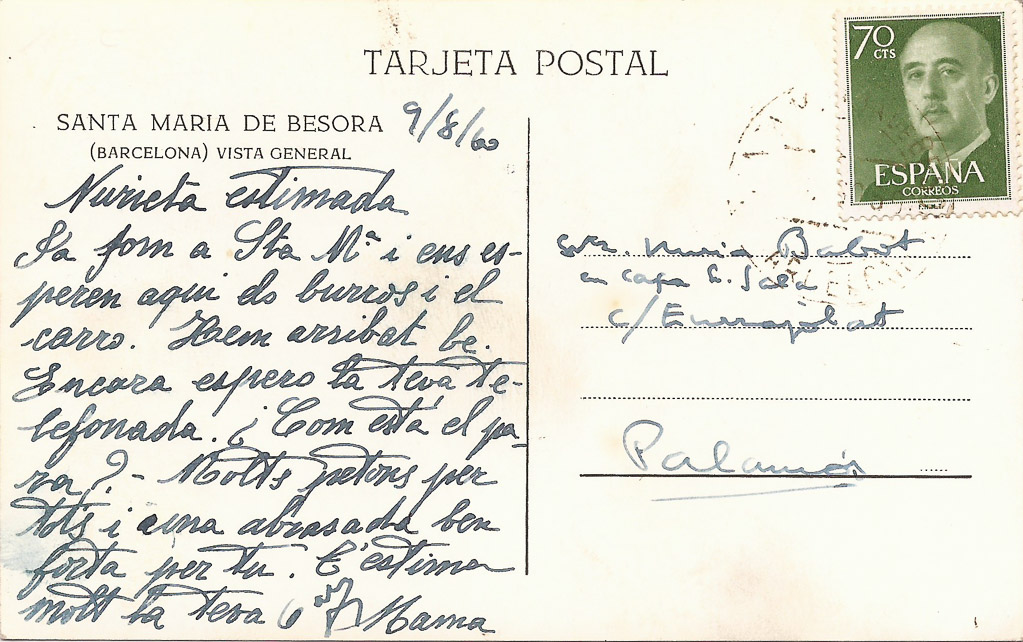 TARJETA POSTAL
70 CTS
ESPAÑA
CORREOS
SANTA MARIA DE BESORA
(BARCELONA) VISTA GENERAL
9/8/60
Nurieta estimada
Ja fom a Sta Mª i ens es-
peren aqui els burros i el
carro. Hem arribat be.
Encara espero la teva te-
lefonada. ¿Com està el pa-
va? - Molts petons per
tots i una abrasada ben
forta per tu. T'estima
molt la teva Mama
Nuria
en casa Sala
c/
Palamós